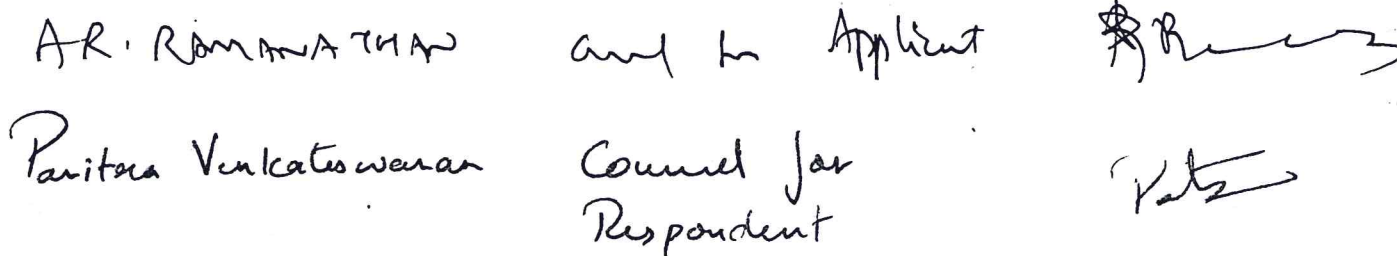 AR. RAMANATHAN Applicant
Pavitra Venkateswaran Counsel for
Respondent